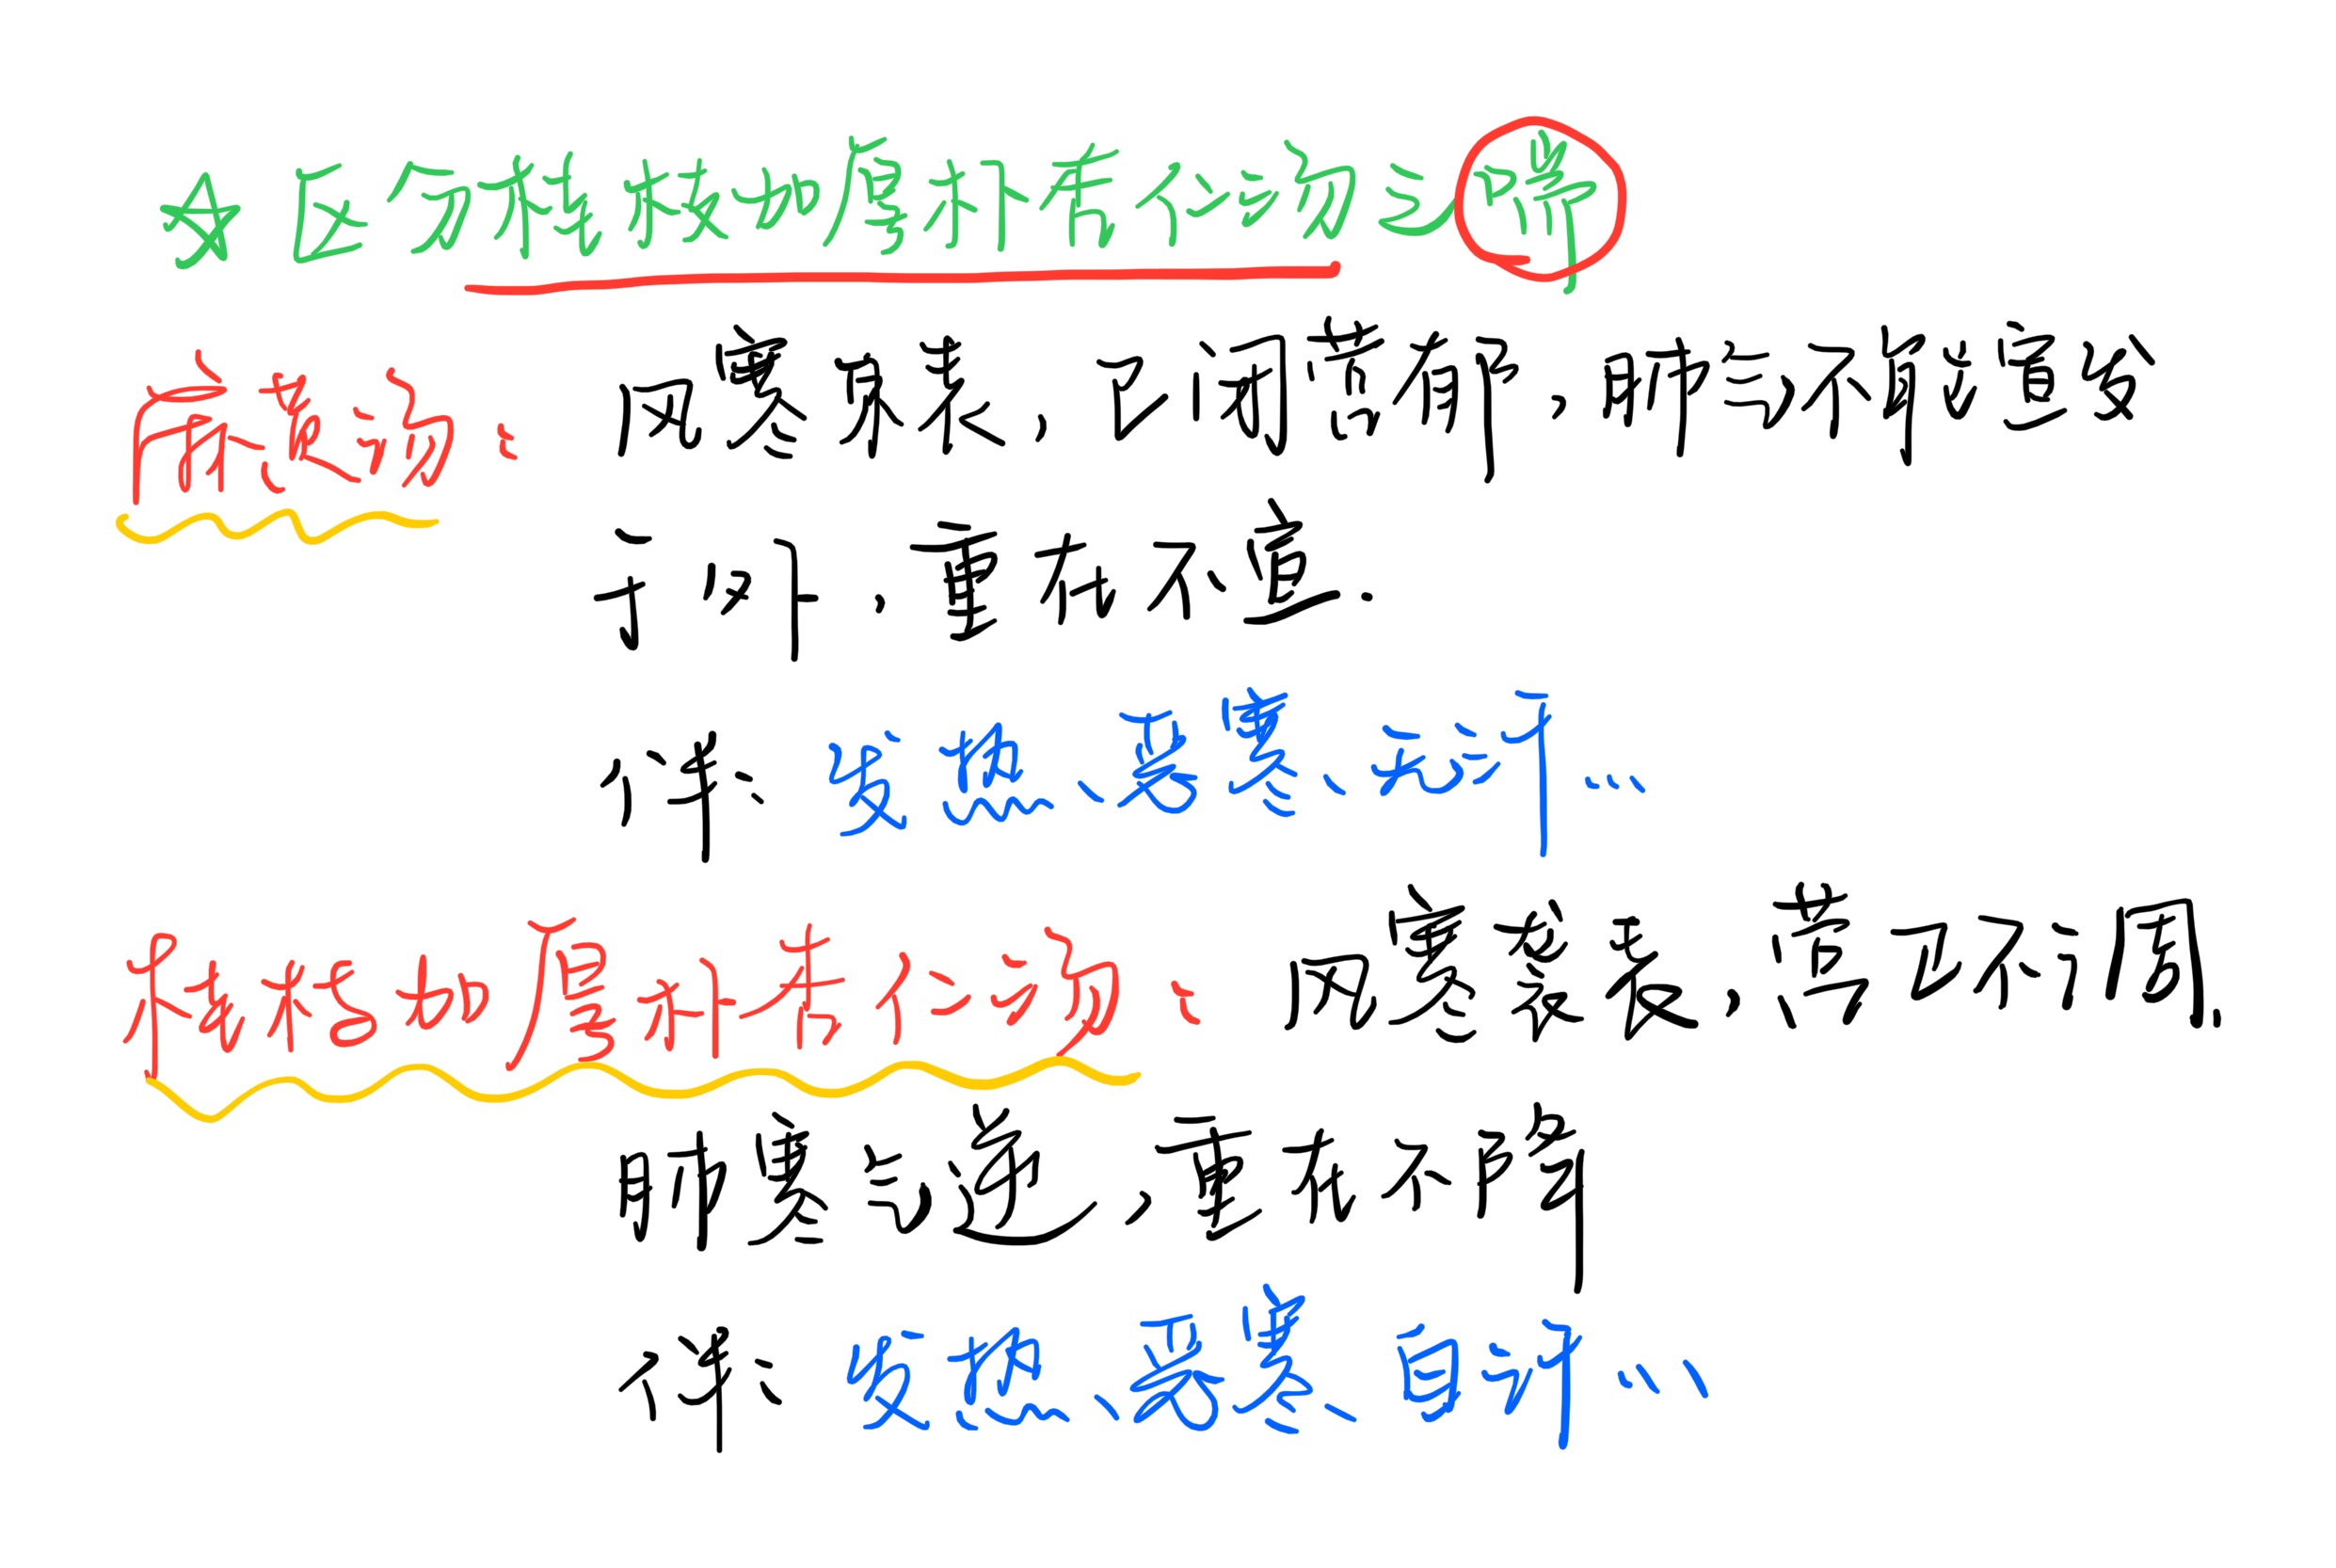 ☆区分桂枝加厚朴杏仁汤之喘
麻黄汤：风寒束表，卫闭营郁，肺气不能宣发
于外，重在不宣.
伴：发热、恶寒、无汗...
桂枝加厚朴杏仁汤：风寒袭表，营卫不调.
肺寒气逆，重在不降
伴：发热、恶寒、自汗...